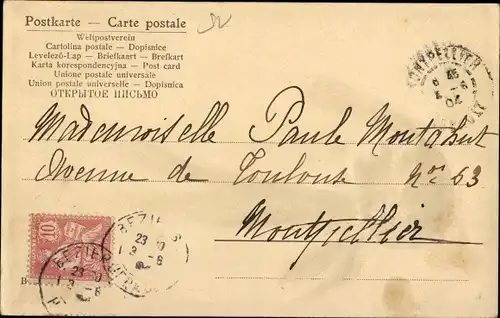 Postkarte — Carte postale
Weltpostverein
Cartolina postale — Dopisnice
Levelező-Lap — Briefkaart — Brefkort
Karta korespondencyjna — Post card
Unione postale universale
Union postale universelle — Dopisnica
ОТКРЫТОЕ ПИСЬМО
MONTPELLIER
Mademoiselle Paule Montahut
Avenue de Toulouse Nº 53
Montpellier
10
BEZIERS
23 10
BEZIERS
23 10